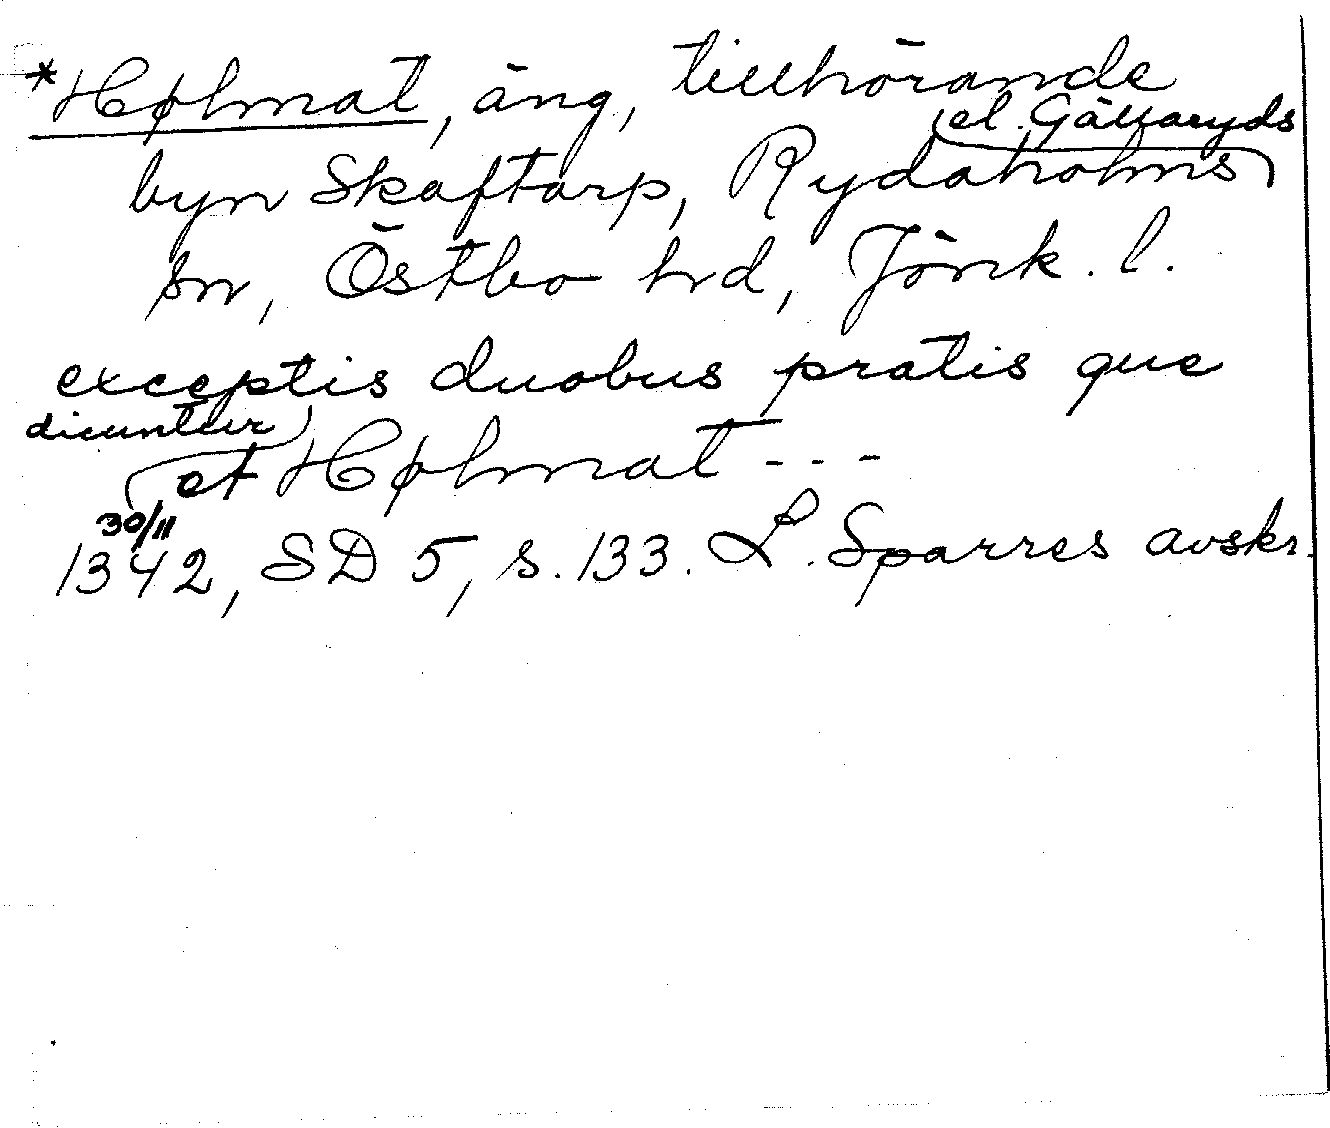 *Hølmat, äng, tillhörande
el. Gällaryds
byn Skaftarp, Rydaholms
sn, Östbo hd, Jönk. l.
exceptis duobus pratis que
dicuntur
et Hølmat - - -
30/11
1342, SD 5, s. 133. L. Sparres avskr.